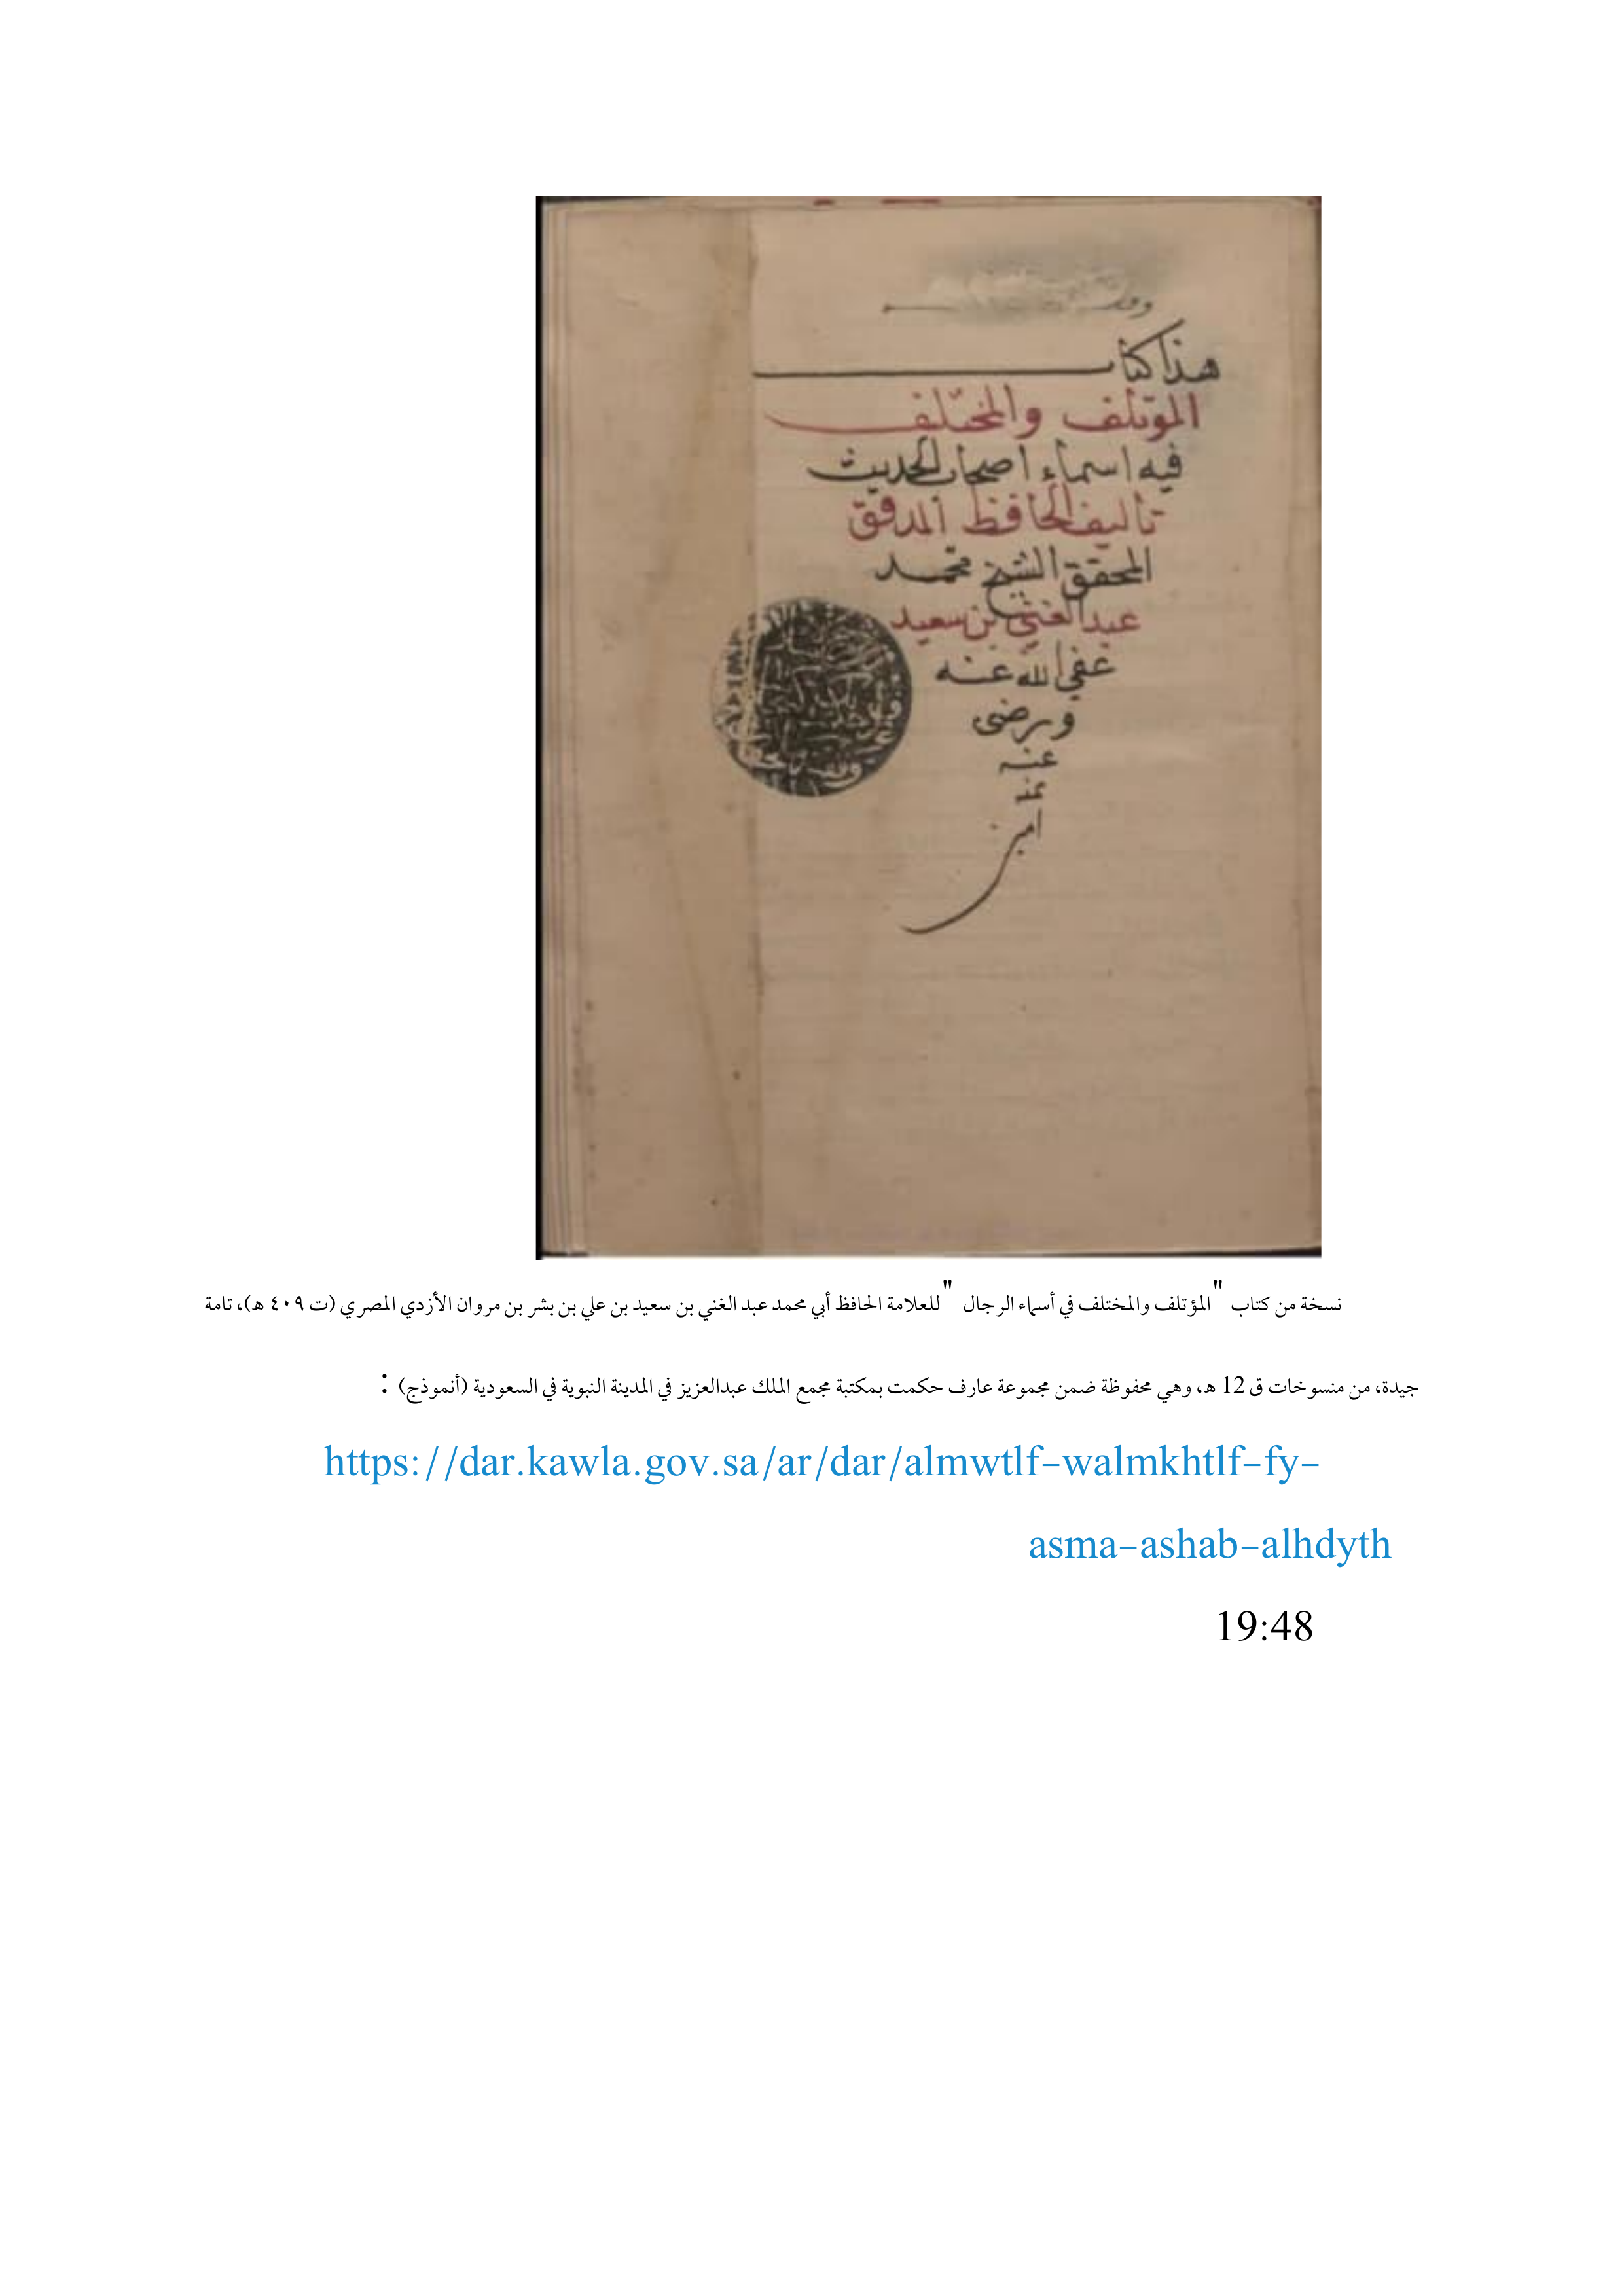 هذا كتاب
المؤتلف والمختلف
فيه اسماء اصحاب الحديث
تاليف الحافظ المدقق
المحقق الشيخ محمد
عبد الغني بن سعيد
عفي الله عنه
ورضى
عنه
امين
نسخة من كتاب "المؤتلف والمختلف في أسماء الرجال" للعلامة الحافظ أبي محمد عبد الغني بن سعيد بن علي بن بشر بن مروان الأزدي المصري (ت ٤٠٩ هـ)، تامة
جيدة، من منسوخات ق 12 هـ، وهي محفوظة ضمن مجموعة عارف حكمت بمكتبة مجمع الملك عبدالعزيز في المدينة النبوية في السعودية (أنموذج) :
https://dar.kawla.gov.sa/ar/dar/almwtlf-walmkhtlf-fy-
asma-ashab-alhdyth
19:48